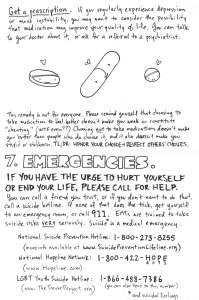 Get a prescription. If you regularly experience depression
or mood instability, you may want to consider the possibility
that medication may improve your quality of life. You can talk
to your doctor about it, or ask for a referral to a psychiatrist.
This remedy is not for everyone. Please remind yourself that choosing to
take medication to feel better doesn't make you weak or constitute
"cheating." (WTF EVEN??) Choosing not to take medication doesn't make
you better than people who do choose it, and it also doesn't make you
stupid or stubborn. TL;DR: HONOR YOUR CHOICE & RESPECT OTHERS' CHOICES.
7. EMERGENCIES.
IF YOU HAVE THE URGE TO HURT YOURSELF
OR END YOUR LIFE, PLEASE CALL FOR HELP.
You can call a friend you trust, or if you don't want to do that,
call a suicide hotline. If none of that does the trick, get yourself
to an emergency room, or call 911. EMTs are trained to take
suicide risks VERY seriously. Suicide* is a medical emergency.
National Suicide Prevention Hotline: 1-800-273-8255
(more info available at www.SuicidePreventionLifeline.org)
National Hopeline Network: 1-800-422-HOPE
(www.Hopeline.com)
LGBT Youth Suicide Hotline: 1-866-488-7386
(www.TheTrevorProject.org) (you can also text to this number)
*and suicidal feelings